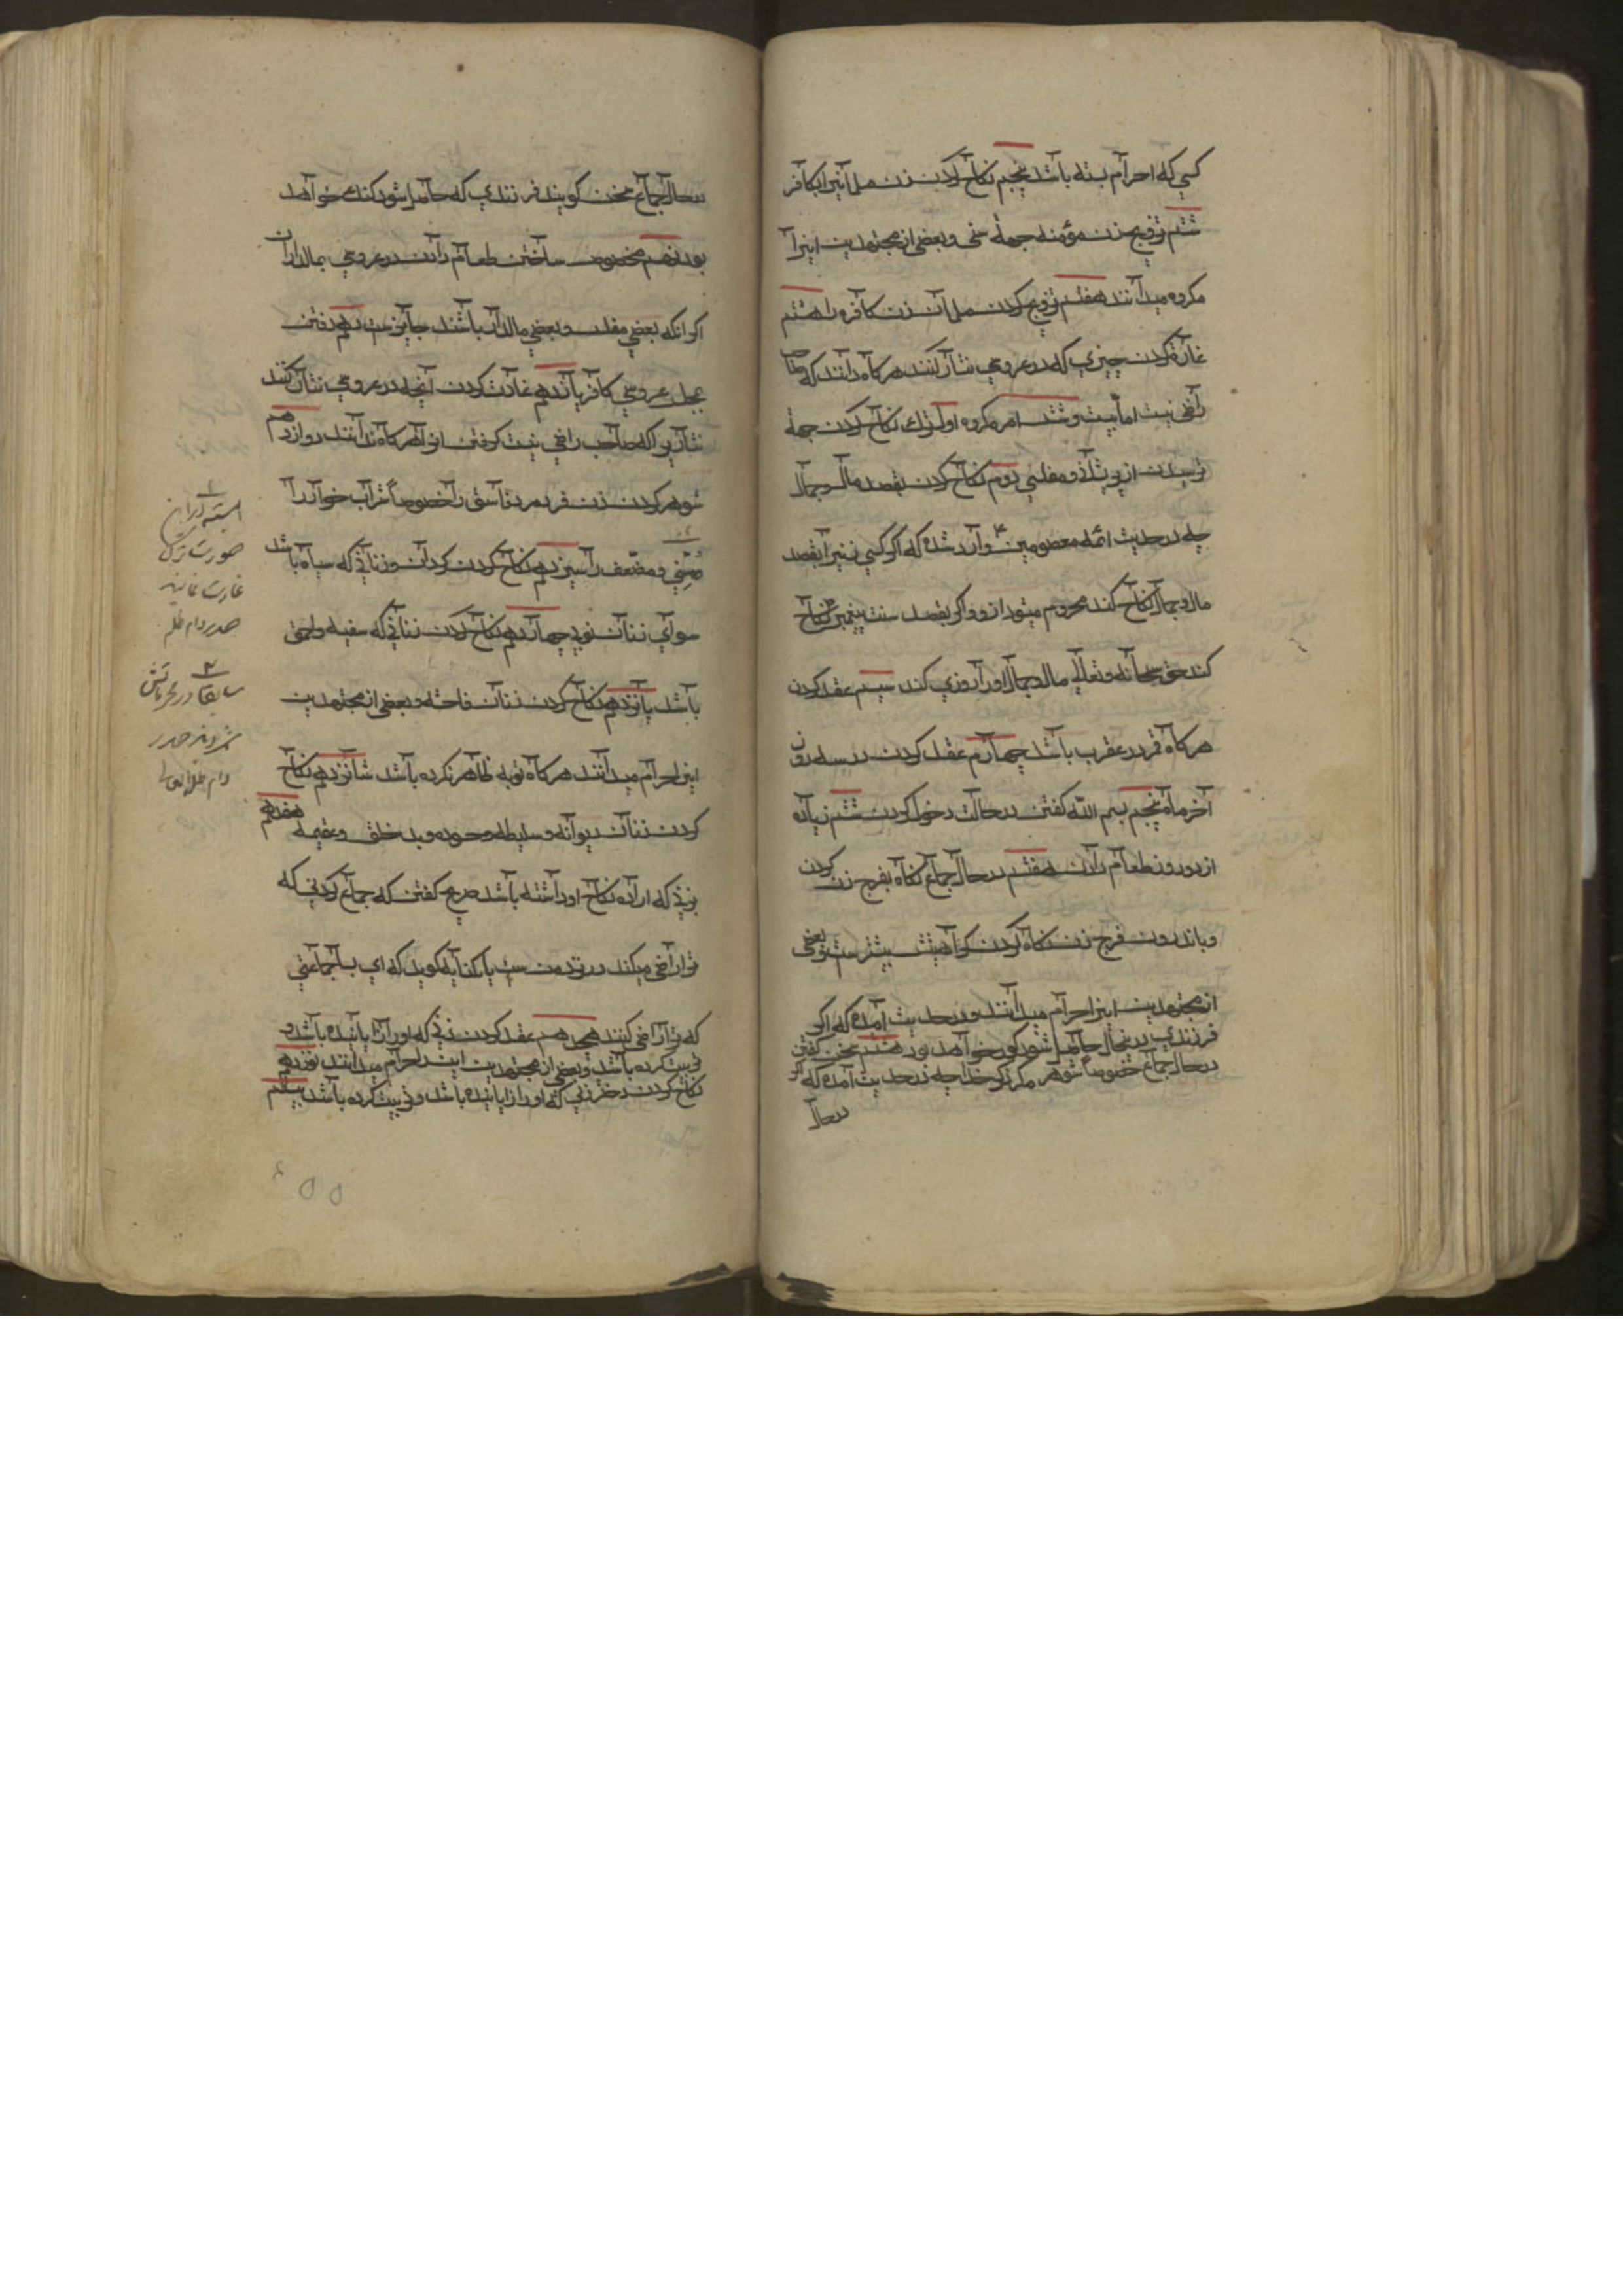 کسی که احرام بسته باشد پنجم نکاح کردن زن مسلمانیرا بکافر
ششم تزویج زن مؤمنه جهة سنی و بعضی از مجتهدین اینرا
مکروه میدانند هفتم تزویج کردن مسلمان زن کافره را هشتم
غارة کردن چیزی که در عروسی نثار کنند هرکاه دانند که صاحبش
راضی نیست اما بیست و شش امر مکروه اول ترك نکاح کردن جهة
ترسیدن از پریشانی و مفلسی دوم نکاح کردن بقصد مال و جمال
چه در حدیث ائمه معصومین ع وارد شده که اکر کسی زنیرا بقصد
مال و جمال نکاح کند محروم میشود از و و اکر بقصد سنت پیغمبر نکاح
کند حق سبحانه و تعالی مال و جمال اورا روزی کند سیم عقد کردن
هرکاه قمر در عقرب باشد چهارم عقد کردن در سه روز
آخر ماه پنجم بسم الله کفتن در حالت دخول کردن ششم زیاده
از دو روز طعام دادن هفتم در حال جماع نکاه بفرج زن کردن
و باندرون فرج زن نکاه کردن کراهیتش بیشترست و بعضی
از مجتهدین اینرا حرام میدانند و در حدیث آمده که اکر
فرزندی در ینحال حاصل شود کور خواهد بود هشتم سخن کفتن
در حال جماع خصوصاً شوهر مکر ذکر خدا چه در حدیث آمده که اکر
در حال
در حال جماع سخن کویند فرزندی که حاصل شود کنك خواهد
بود نهم مخصوص ساختن طعام دادن در عروسی بمالداران
اکر انکه بعضی مفلس و بعضی مالدار باشند جایزست دهم رفتن
بمجلس عروسی کافر یازدهم غارت کردن آنچه در عروسی نثار کنند
نثاریرا که صاحب راضی نیست کرفتن از و هرکاه ندانند دوازدهم
شوهر کردن زن خود بمرد فاسق را خصوصاً شراب خوار را
و سنی و مستضعف را سیزدهم نکاح کردن کردان و زنانی که سیاه باشد
سوای زنان نوبه چهاردهم نکاح کردن زنانی که سفیه و احمق
باشد پانزدهم نکاح کردن زنان فاحشه و بعضی از مجتهدین
اینرا حرام میدانند هرکاه توبه ظاهر نکرده باشد شانزدهم نکاح
کردن زنان دیوانه و سلیطه و حسوده و بد خلق و عقیمه هفدهم
بزنی که اراده نکاح او داشته باشد صریح کفتن که جماع کردنی که
ترا راضی میکند در نزد منست یا کنایه کوید که ای بسا جماعتی
که ترا راضی کنند هجدهم عقد کردن زنی که اورا زایانیده باشد و
تربیت کرده باشد و بعضی از مجتهدین اینرا حرام میدانند نوزدهم
نکاح کردن دختر زنی که اورا زایانیده باشد و تربیت کرده باشد بیستم